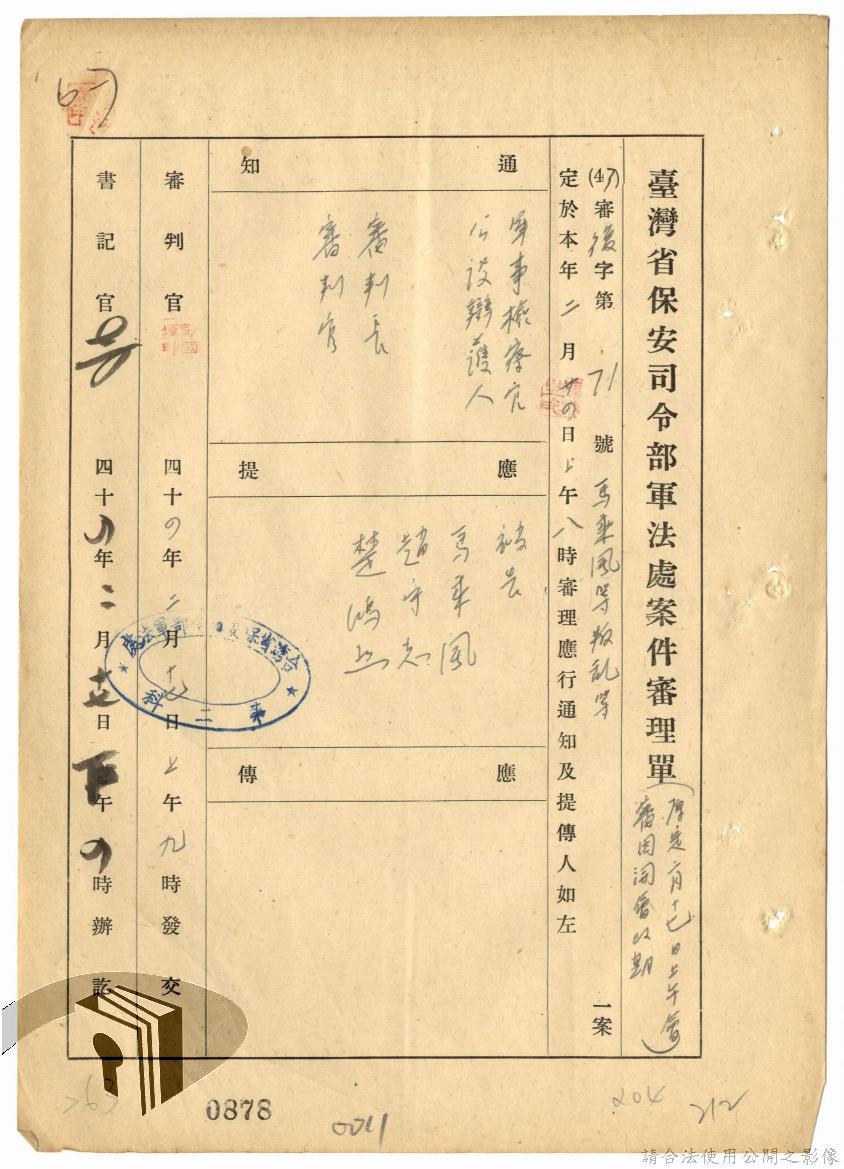 臺灣省保安司令部軍法處案件審理單
(原定二月十七日上午會
審因開會改期)
(44)審復字第71號馬乘風等叛乱等一案
定於本年二月廿四日上午八時審理應行通知及提傳人如左
通知
軍事檢察官
公設辯護人
審判長
審判官
應提
被告
馬乘風
趙守志
楚鴻烈
應傳
審判官 四十四年二月十七日上午九時發交
書記官 四十四年二月十七日下午四時辦訖
台灣省保安司令部軍法處
第二科
0878
0011
204
212
263
請合法使用公開之影像